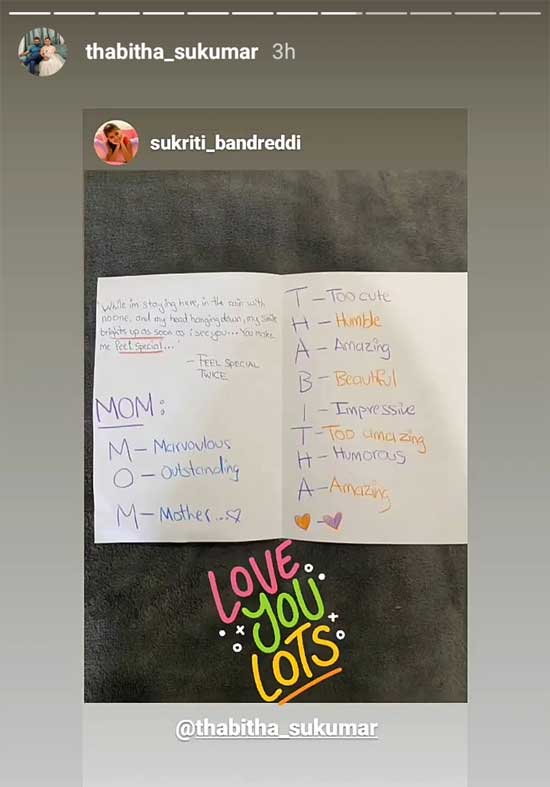 thabitha_sukumar 3h
sukriti_bandreddi
"While im staying here, in the rain with
noone, and my head hanging down, my smile
brights up as soon as i see you... You make
me feel special..."
- FEEL SPECIAL
TWICE
MOM:
M - Marvoulous
O - Outstanding
M - Mother...
T - Too cute
H - Humble
A - Amazing
B - Beautiful
I - Impressive
T - Too amazing
H - Humorous
A - Amazing
LOVE
YOU
LOTS
@thabitha_sukumar